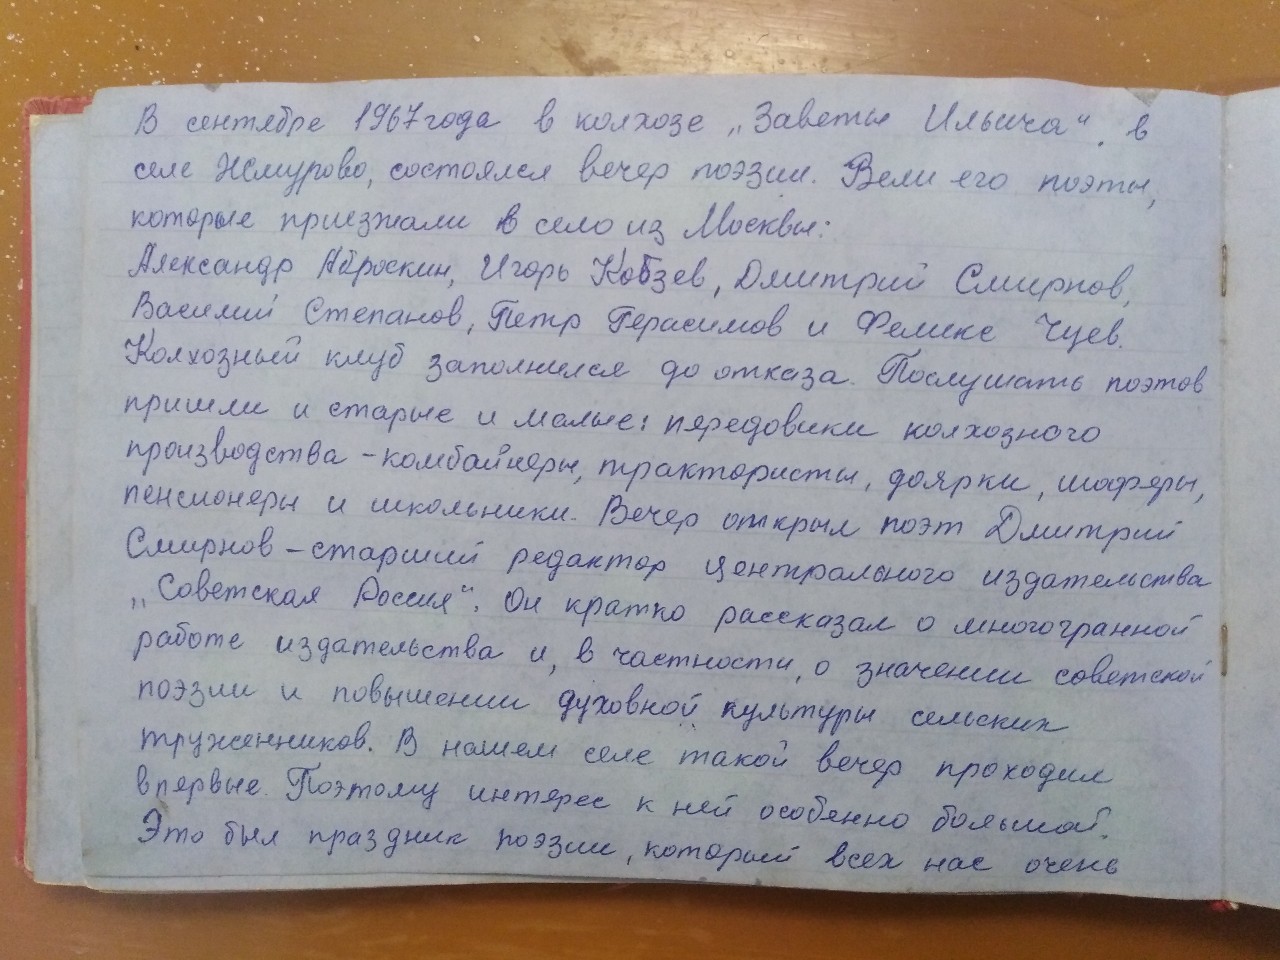 В сентябре 1967 года в колхозе „Заветы Ильича“, в
селе Жмурово, состоялся вечер поэзии. Вели его поэты,
которые приезжали в село из Москвы:
Александр Аброскин, Игорь Кобзев, Дмитрий Смирнов,
Василий Степанов, Петр Герасимов и Феликс Чуев.
Колхозный клуб заполнился до отказа. Послушать поэтов
пришли и старые и малые: передовики колхозного
производства – комбайнеры, трактористы, доярки, шоферы,
пенсионеры и школьники. Вечер открыл поэт Дмитрий
Смирнов – старший редактор центрального издательства
„Советская Россия“. Он кратко рассказал о многогранной
работе издательства и, в частности, о значении советской
поэзии и повышении духовной культуры сельских
труженников. В нашем селе такой вечер проходил
впервые. Поэтому интерес к ней особенно большой.
Это был праздник поэзии, который всех нас очень